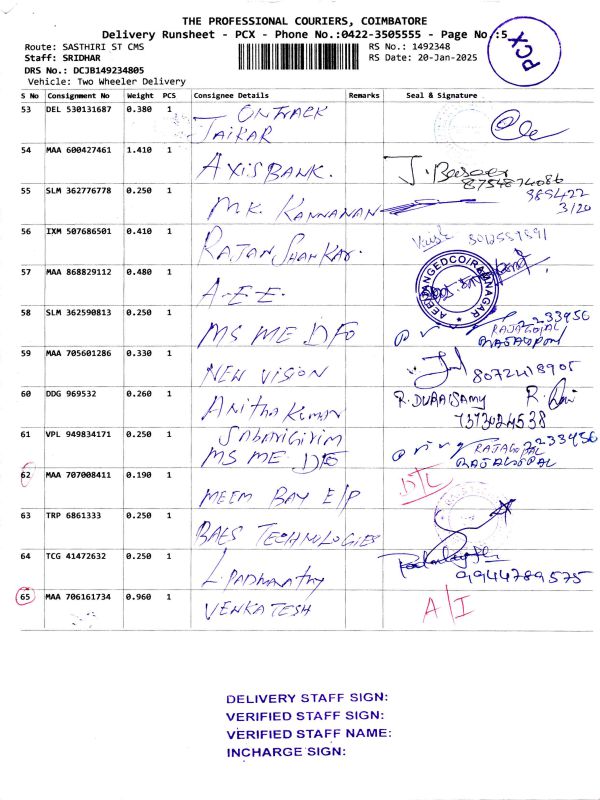 THE PROFESSIONAL COURIERS, COIMBATORE
Delivery Runsheet - PCX - Phone No.:0422-3505555 - Page No.:5
PCX
Route: SASTHIRI ST CMS
RS No.: 1492348
Staff: SRIDHAR
RS Date: 20-Jan-2025
DRS No.: DCJB149234805
Vehicle: Two Wheeler Delivery
S No Consignment No Weight PCS Consignee Details Remarks Seal & Signature
53 DEL 530131687 0.380 1 ONTRACK
JAIKAR
54 MAA 600427461 1.410 1 AXIS BANK.
8754874086
55 SLM 362776778 0.250 1 MK. KANNANAN
989422
3120
56 IXM 507686501 0.410 1 RAJAN SHANKAR.
57 MAA 868829112 0.480 1 A-E-E.
58 SLM 362590813 0.250 1 MS ME DFO 2233956
RAJAGOPAL
RAJAGOPAL
59 MAA 705601286 0.330 1 NEW VISION 8072418905
60 DDG 969532 0.260 1 Anitha Kumar R. DURAISAMY
7373024538
61 VPL 949834171 0.250 1 Sabarigirim
MS ME DFO 2233956
RAJAGOPAL
RAJAGOPAL
62 MAA 707008411 0.190 1 MEEM BAY E/P D/L
63 TRP 6861333 0.250 1 BAES TECHNOLOGIES
64 TCG 41472632 0.250 1 L. Padmavathy 9944789575
65 MAA 706161734 0.960 1 VENKATESH A/I
DELIVERY STAFF SIGN:
VERIFIED STAFF SIGN:
VERIFIED STAFF NAME:
INCHARGE SIGN: